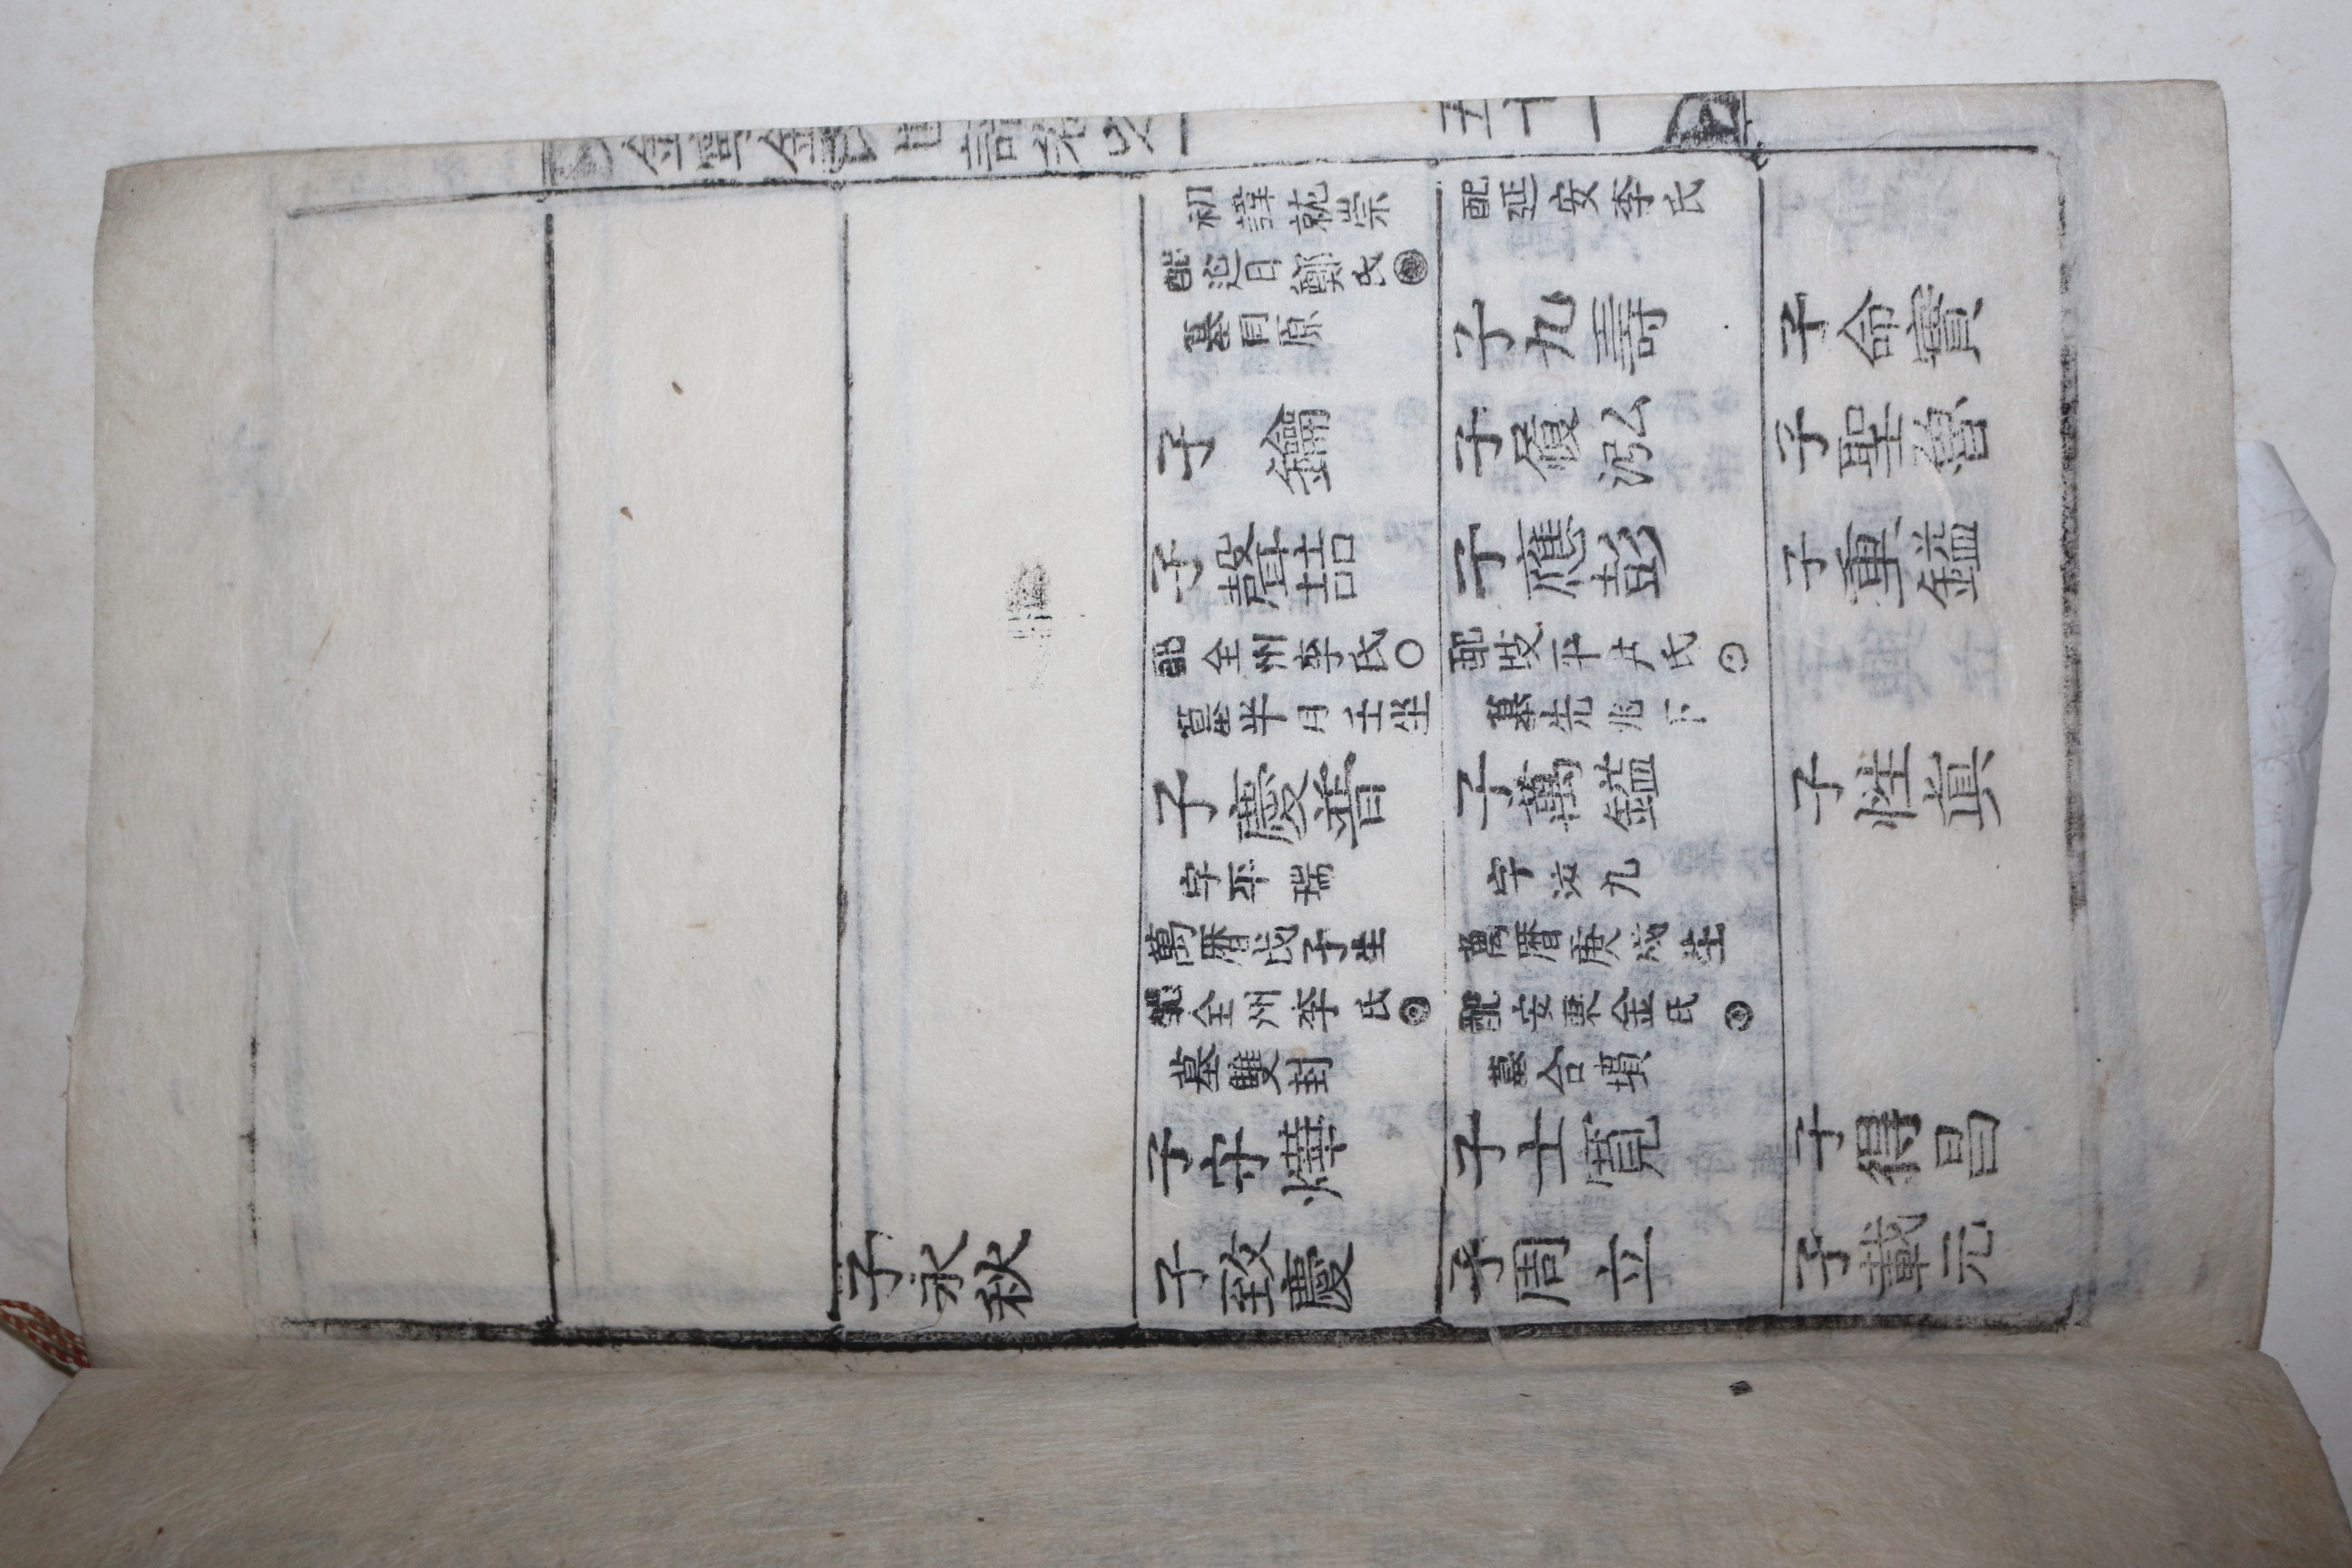 五十一
子永秋
初諱就崇
配迎日鄭氏
墓同原
子鑰
子聲喆
配全州李氏○
墓半月壬坐
子慶普
字平瑞
萬曆戊子生
配全州李氏
墓雙封
子守燁
子致慶
配延安李氏
子九壽
子履泓
子應彭
配坡平尹氏
墓先兆下
子萬鎰
字汝九
萬曆庚戌生
配安東金氏
墓合墳
子士寬
子周立
子命實
子聖魯
子重鎰
子性眞
子得昌
子載元